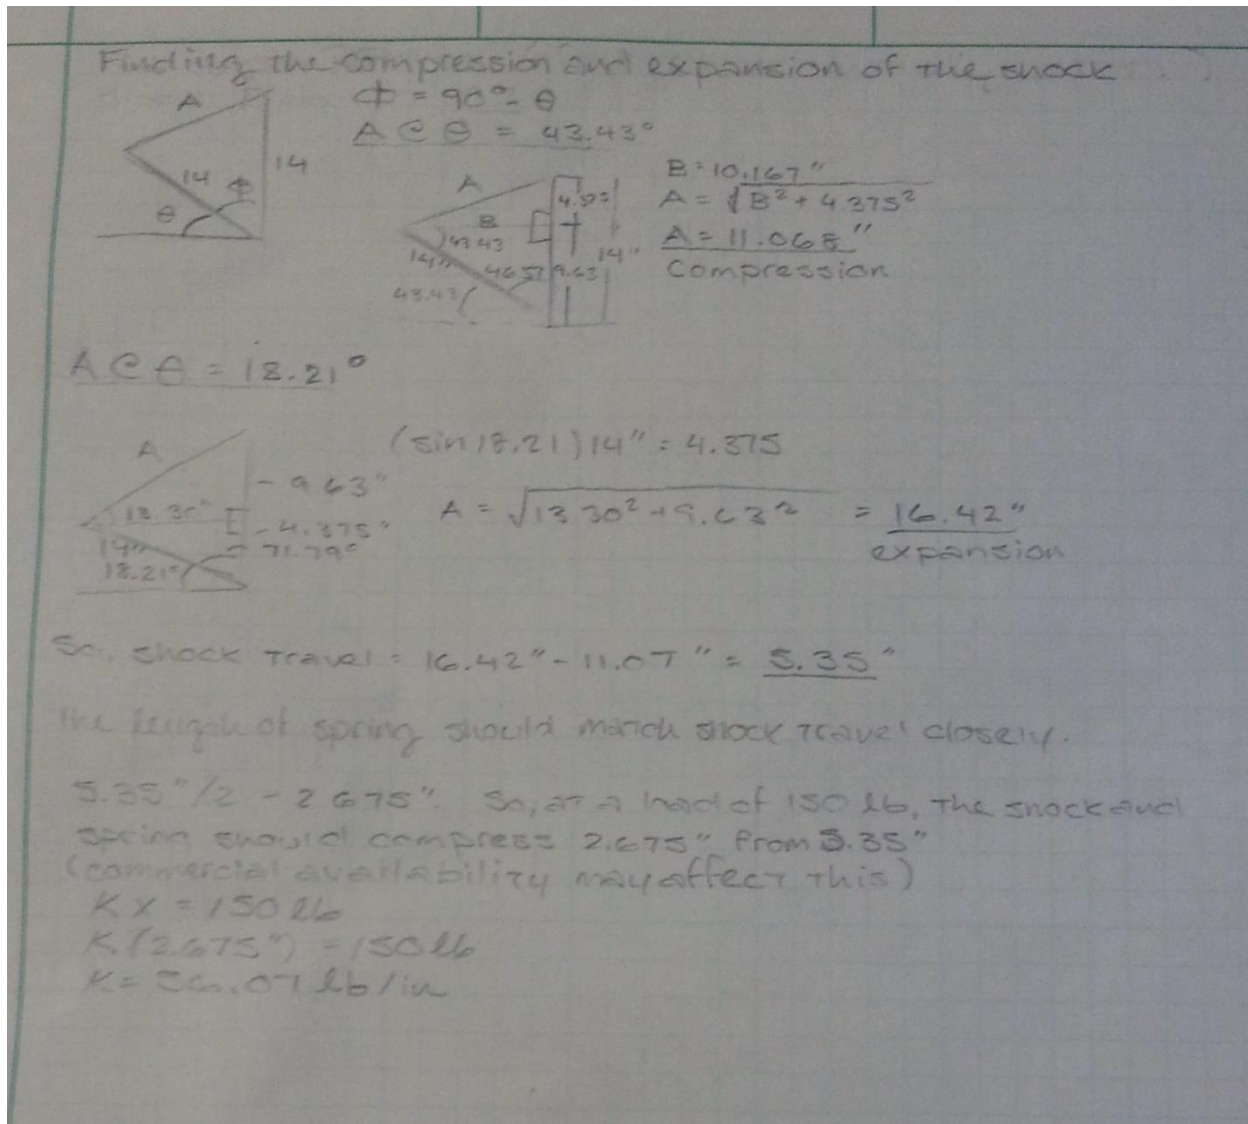 Finding the compression and expansion of the shock
Φ = 90° - θ
A @ θ = 43.43°
A
14
14
Φ
θ
A
B
43.43
14"
46.57
43.43
4.375
9.63
14"
B = 10.167"
A = √B² + 4.375²
A = 11.068"
Compression
A @ θ = 18.21°
A
13.30"
14"
18.21°
- 9.63"
- 4.375"
71.79°
(sin 18.21) 14" = 4.375
A = √13.30² + 9.63² = 16.42"
expansion
So, shock travel = 16.42" - 11.07" = 5.35"
The length of spring should match shock travel closely.
5.35"/2 = 2.675". So, at a load of 150 lb, the shock and
spring should compress 2.675" from 5.35"
(commercial availability may affect this)
Kx = 150 lb
K(2.675") = 150 lb
K = 56.07 lb/in